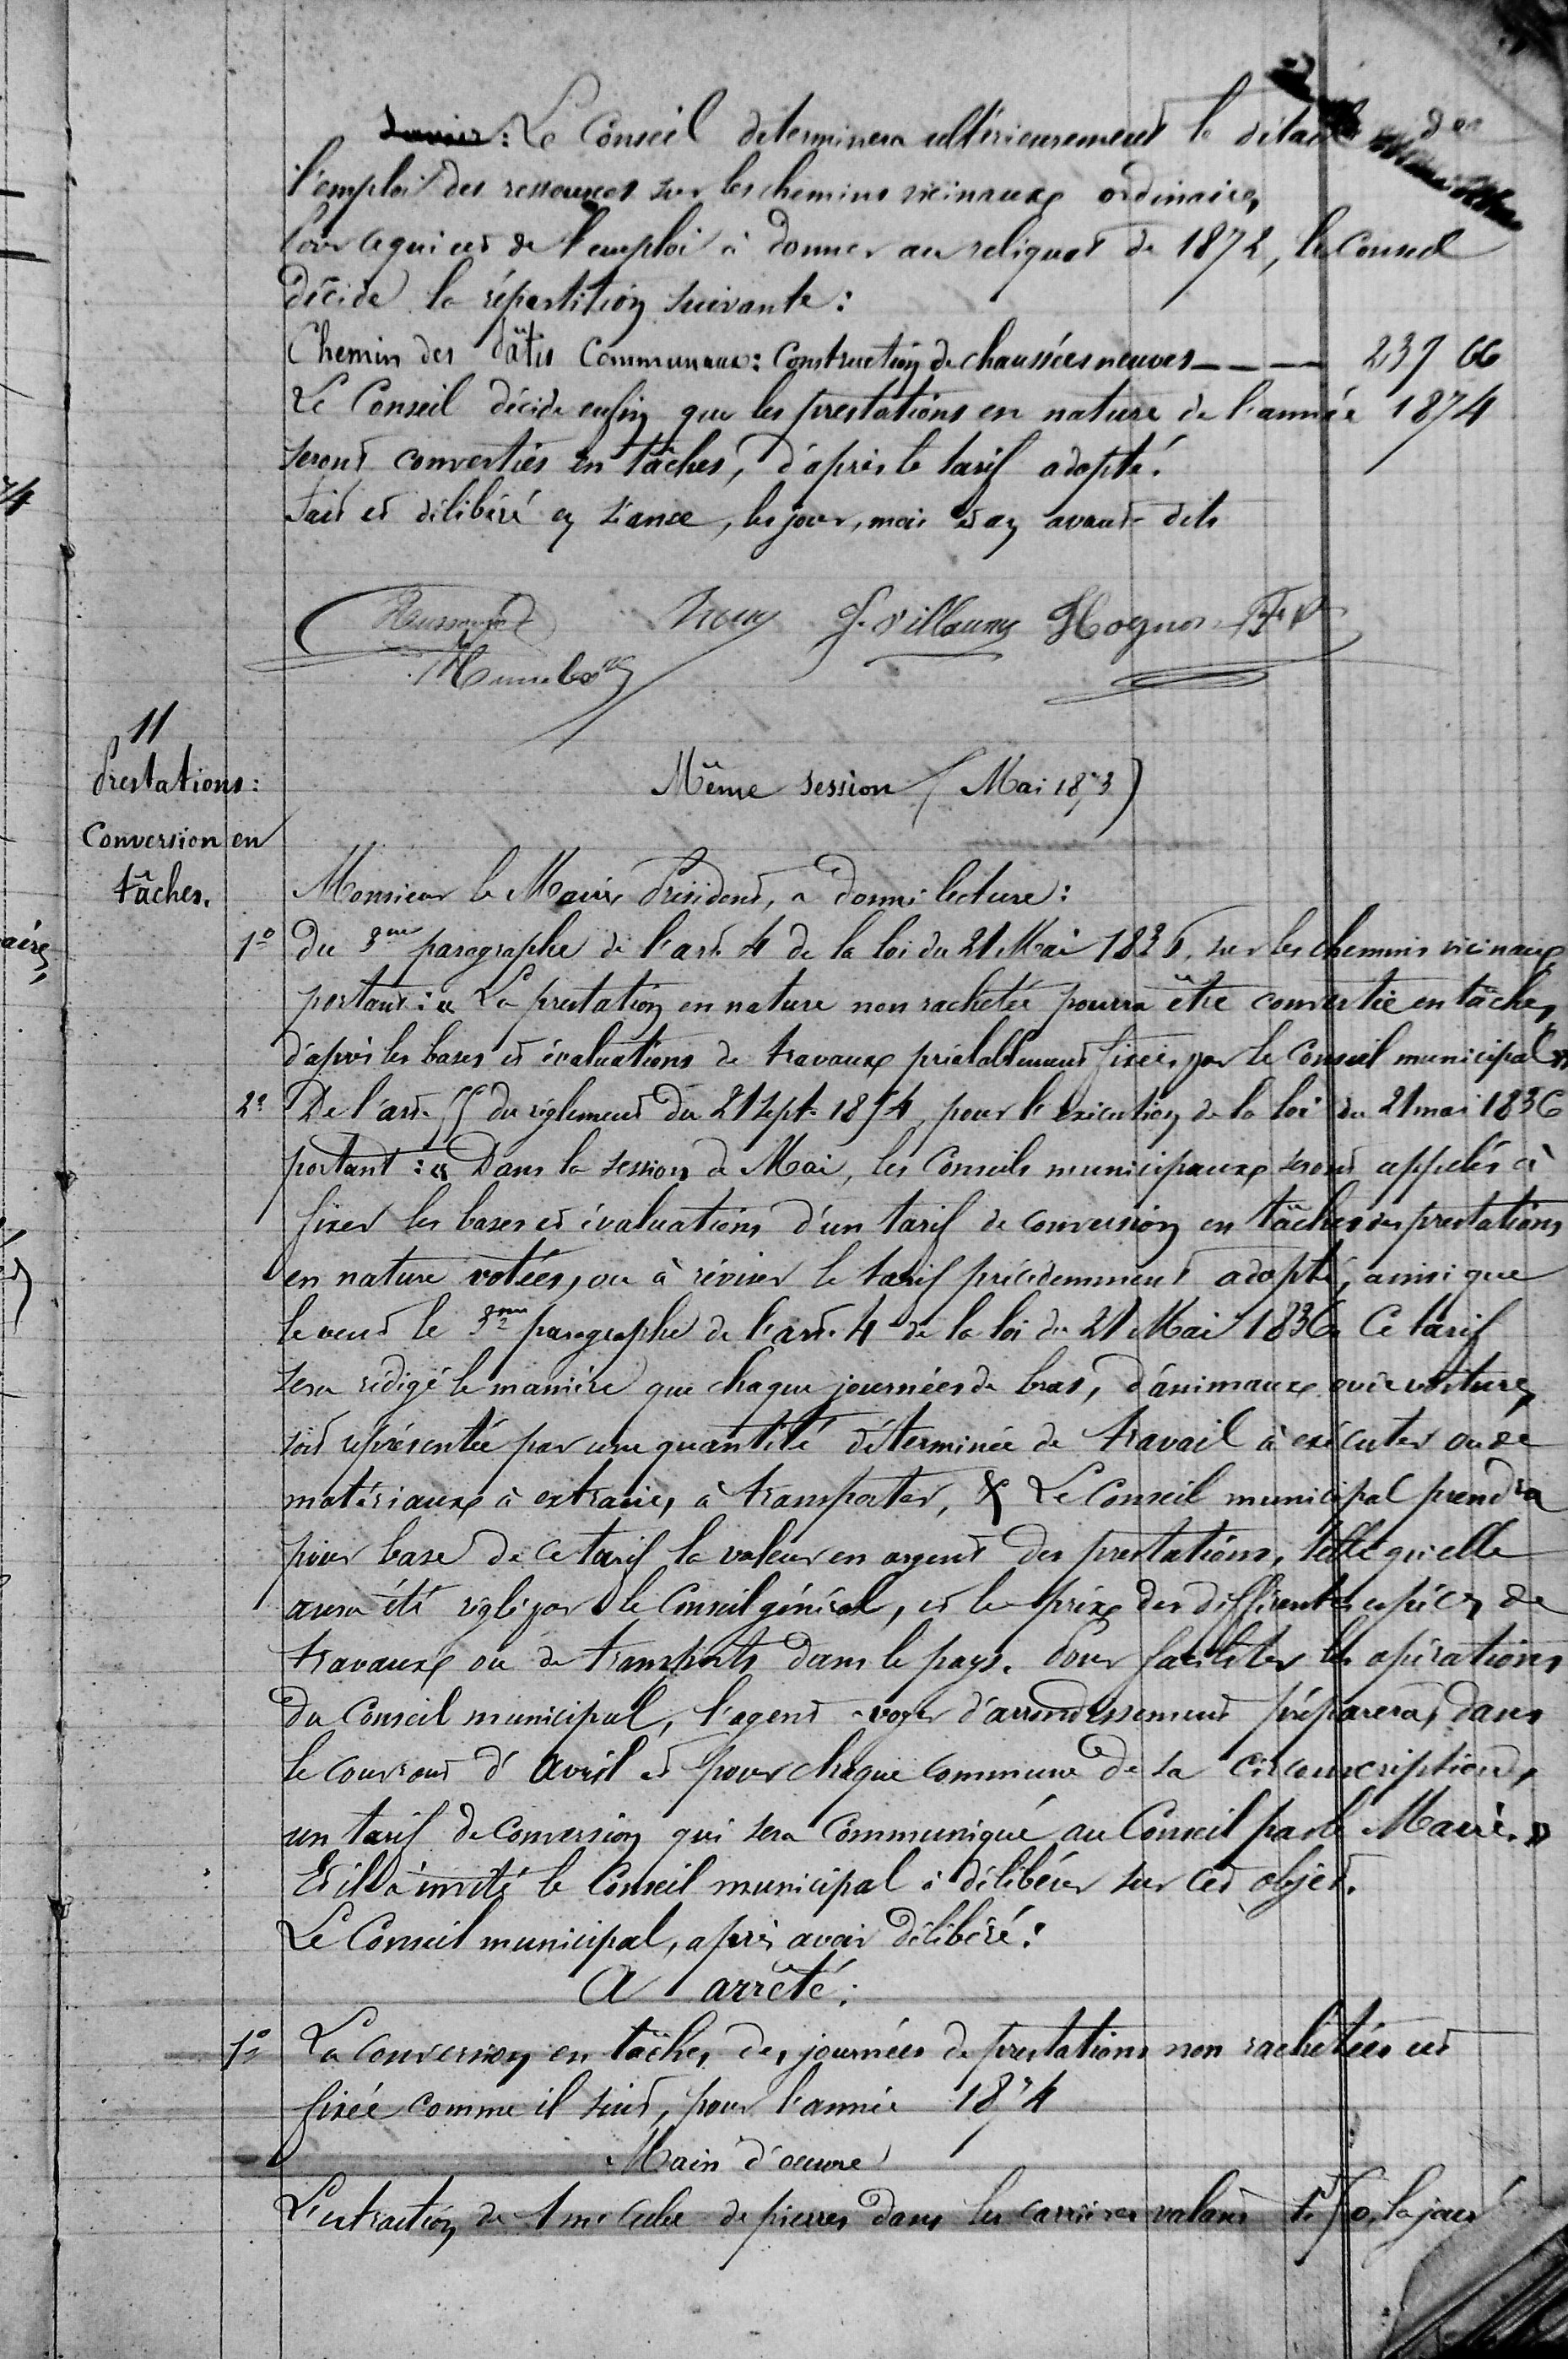 Le Conseil determinera ultérieurement le détail de
l'emploi des ressources sur les chemins vicinaux ordinaires
Pour ce qui est de l'emploi à donner au reliquat de 1872, le Conseil
décide la répartition suivante :
Chemin des Pâtis Communaux : Construction de chaussées neuves — — — 237 66
Le Conseil décide enfin que les prestations en nature de l'année 1874
seront converties en tâches, d'après le tarif adopté.
Fait et délibéré en séance, les jour, mois et an avant dits
11
Prestations :
Conversion en
tâches.
Même session (Mai 1873)
Monsieur le Maire Président, a donné lecture :
1º du 3me paragraphe de l'art. 4 de la loi du 21 Mai 1836, sur les chemins vicinaux,
portant : « La prestation en nature non rachetée pourra être convertie en tâches,
d'après les bases et évaluations de travaux préalablement fixées par le Conseil municipal »
2º De l'art. du règlement du 21 Sept. 1854, pour l'exécution de la loi du 21 mai 1836
portant : « Dans la session de Mai, les Conseils municipaux seront appelés à
fixer les bases et évaluations d'un tarif de conversion en tâches des prestations
en nature votées, ou à réviser le tarif précédemment adopté, ainsi que
le veut le 3me paragraphe de l'art. 4 de la loi du 21 Mai 1836. Ce tarif
sera rédigé de manière que chaque journées de bras, d'animaux ou de voitures,
soit représentée par une quantité déterminée de travail à exécuter ou de
matériaux à extraire, à transporter, & Le Conseil municipal prendra
pour base de ce tarif la valeur en argent des prestations, telle qu'elle
aura été réglée par le Conseil général, et le prix des différentes espèces de
travaux ou de transports dans le pays. Pour faciliter les opérations
du Conseil municipal, l'agent-voyer d'arrondissement préparera, dans
le courant d'Avril et pour chaque commune de sa circonscription,
un tarif de conversion qui sera communiqué au Conseil par le Maire. »
Et il a invité le Conseil municipal à délibérer sur cet objet.
Le Conseil municipal, après avoir délibéré :
A arrêté :
1º La conversion en tâches des journées de prestations non rachetées est
fixée comme il suit, pour l'année 1874
Main d'oeuvre
L'extraction de 1 m. cube de pierres dans les carrières valant